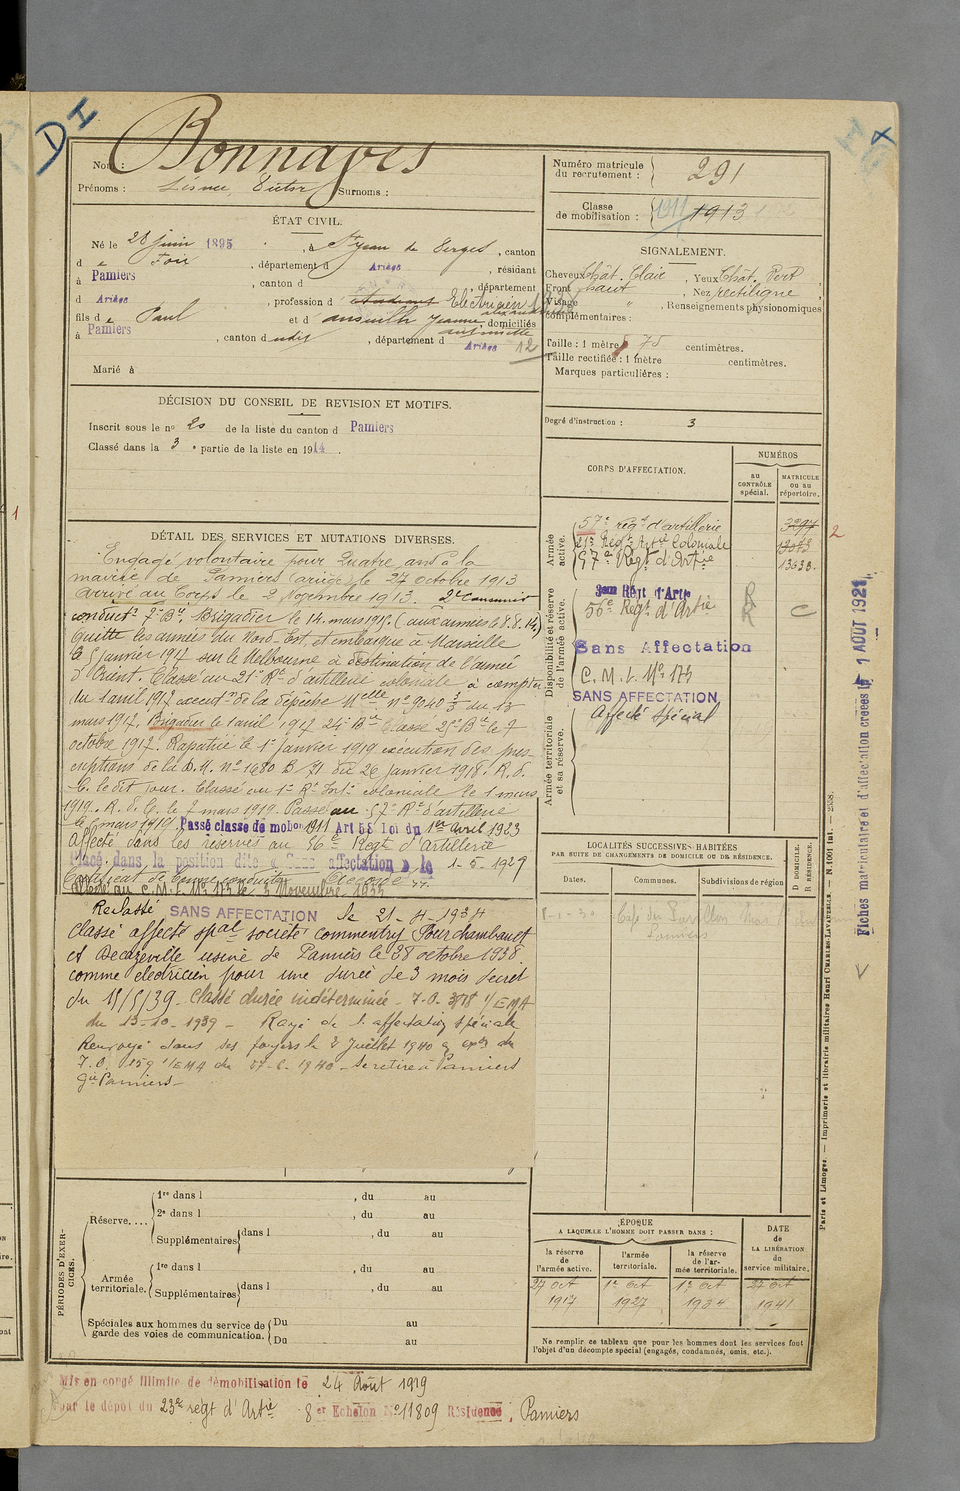 DI
Nom : Bonnayes
Prénoms : Victor Surnoms :
ÉTAT CIVIL.
Né le 28 juin 1895, à St Jean de Verges, canton
d e Foix, département d Ariège, résidant
à Pamiers, canton d , département
d Ariège, profession d étudiant Electricien
fils d e Paul et d Jeanne, domiciliés
à Pamiers, canton dudit, département d Ariège 12
Marié à
DÉCISION DU CONSEIL DE REVISION ET MOTIFS.
Inscrit sous le no 20 de la liste du canton d Pamiers
Classé dans la 3 e partie de la liste en 1914.
DÉTAIL DES SERVICES ET MUTATIONS DIVERSES.
Engagé volontaire pour Quatre ans à la
mairie de Pamiers (ariège) le 27 octobre 1913
arrivé au Corps le 2 Novembre 1913. 2e Canonnier
conduct r Bie. Brigadier le 14 mars 1915. (aux armées le 8.8.14)
Quitte les armées du Nord-Est, et embarque à Marseille
le 5 janvier 1917 sur le Melbourne à destination de l'armée
d'Orient. Classé au 21e Rt d'artillerie coloniale à compter
du 1 avril 1917 execut on de la dépêche Mlle No 9040 3/3 du 13
mars 1917. Brigadier le 1 avril 1917 24e Bie Classe 25e Bie le 7
octobre 1917. Rapatrié le 1er janvier 1919 exécution des pres
criptions de la D.M. no 1680 B 71 du 26 janvier 1918. R. d.
C. le dit jour. Classé au 1er Rt coloniale le 1 mars
1919. R. d. C. le 7 mars 1919. Passé au 57e Rt d'artillerie
le 6 mars 1919. Passé classe de mobon 1911 Art 58 loi du 1er Avril 1923
Affecté dans les réserves au 56e Régt d'Artillerie
Placé dans la position dite « Sans affectation » le 1-5-1929
Certificat de bonne conduite Accordé
Affecté au C.M.I. No 173 le 3 Novembre 1933
Reclassé SANS AFFECTATION le 21-4-1934
Classé affecté spal société Commentry Fourchambault
et Decazeville usine de Pamiers le 28 octobre 1938
comme électricien pour une durée de 3 mois décret
du 15/5/39. Classé durée indéterminée - 7.O. 3718 1/EMA
du 13-10-1939 - Rayé de l'affectation spéciale
Renvoyé dans ses foyers le 2 Juillet 1940
7.O. 159 1/EMA du 1940 - se retire à Pamiers
Pamiers
PÉRIODES D'EXERCICES.
Réserve....
1re dans l , du au
2e dans l , du au
Supplémentaires dans l , du au
Armée territoriale.
1re dans l , du au
Supplémentaires dans l , du au
Spéciales aux hommes du service de garde des voies de communication.
Du au
Du au
Mis en congé illimité de démobilisation le 24 Août 1919
Par le dépôt du 23e régt d'Artie 8er Echelon No 11809 Résidence, Pamiers
Numéro matricule du recrutement : 291
Classe de mobilisation : 1911 1913
SIGNALEMENT.
Cheveux Chât. Clair, Yeux Chât. Vert
Front haut, Nez rectiligne,
Visage " , Renseignements physionomiques
complémentaires :
Taille : 1 mètre 75 centimètres.
Taille rectifiée : 1 mètre centimètres.
Marques particulières :
Degré d'instruction : 3
CORPS D'AFFECTATION.
NUMÉROS
au CONTRÔLE spécial.
MATRICULE ou au répertoire.
Armée active.
57e régt d'artillerie 3297 2
21e Régt Artie Coloniale 13073
57e Régt d'Artie 13638.
Disponibilité et réserve de l'armée active.
Régt d'Artie R
56e Régt d'Artie R C
Sans Affectation
C.M.I. No 173
SANS AFFECTATION
Affecté spécial
Armée territoriale et sa réserve.
LOCALITÉS SUCCESSIVES HABITÉES
PAR SUITE DE CHANGEMENTS DE DOMICILE OU DE RÉSIDENCE.
Dates.
Communes.
Subdivisions de région
D DOMICILE. R RÉSIDENCE.
1-1-30 Café du Pavillon
Pamiers
ÉPOQUE
A LAQUELLE L'HOMME DOIT PASSER DANS :
la réserve de l'armée active.
l'armée territoriale.
la réserve de l'armée territoriale.
DATE de LA LIBÉRATION du service militaire.
27 oct 1917
1er oct 1927
1er oct 1934
27 oct 1941
Ne remplir ce tableau que pour les hommes dont les services font l'objet d'un décompte spécial (engagés, condamnés, omis, etc.).
Paris et Limoges. — Imprimerie et librairie militaires Henri CHARLES-LAVAUZELLE. — N. 1001 int. — 2558.
Fiches matriculaire et d'affectation créées le 1 AOUT 1921